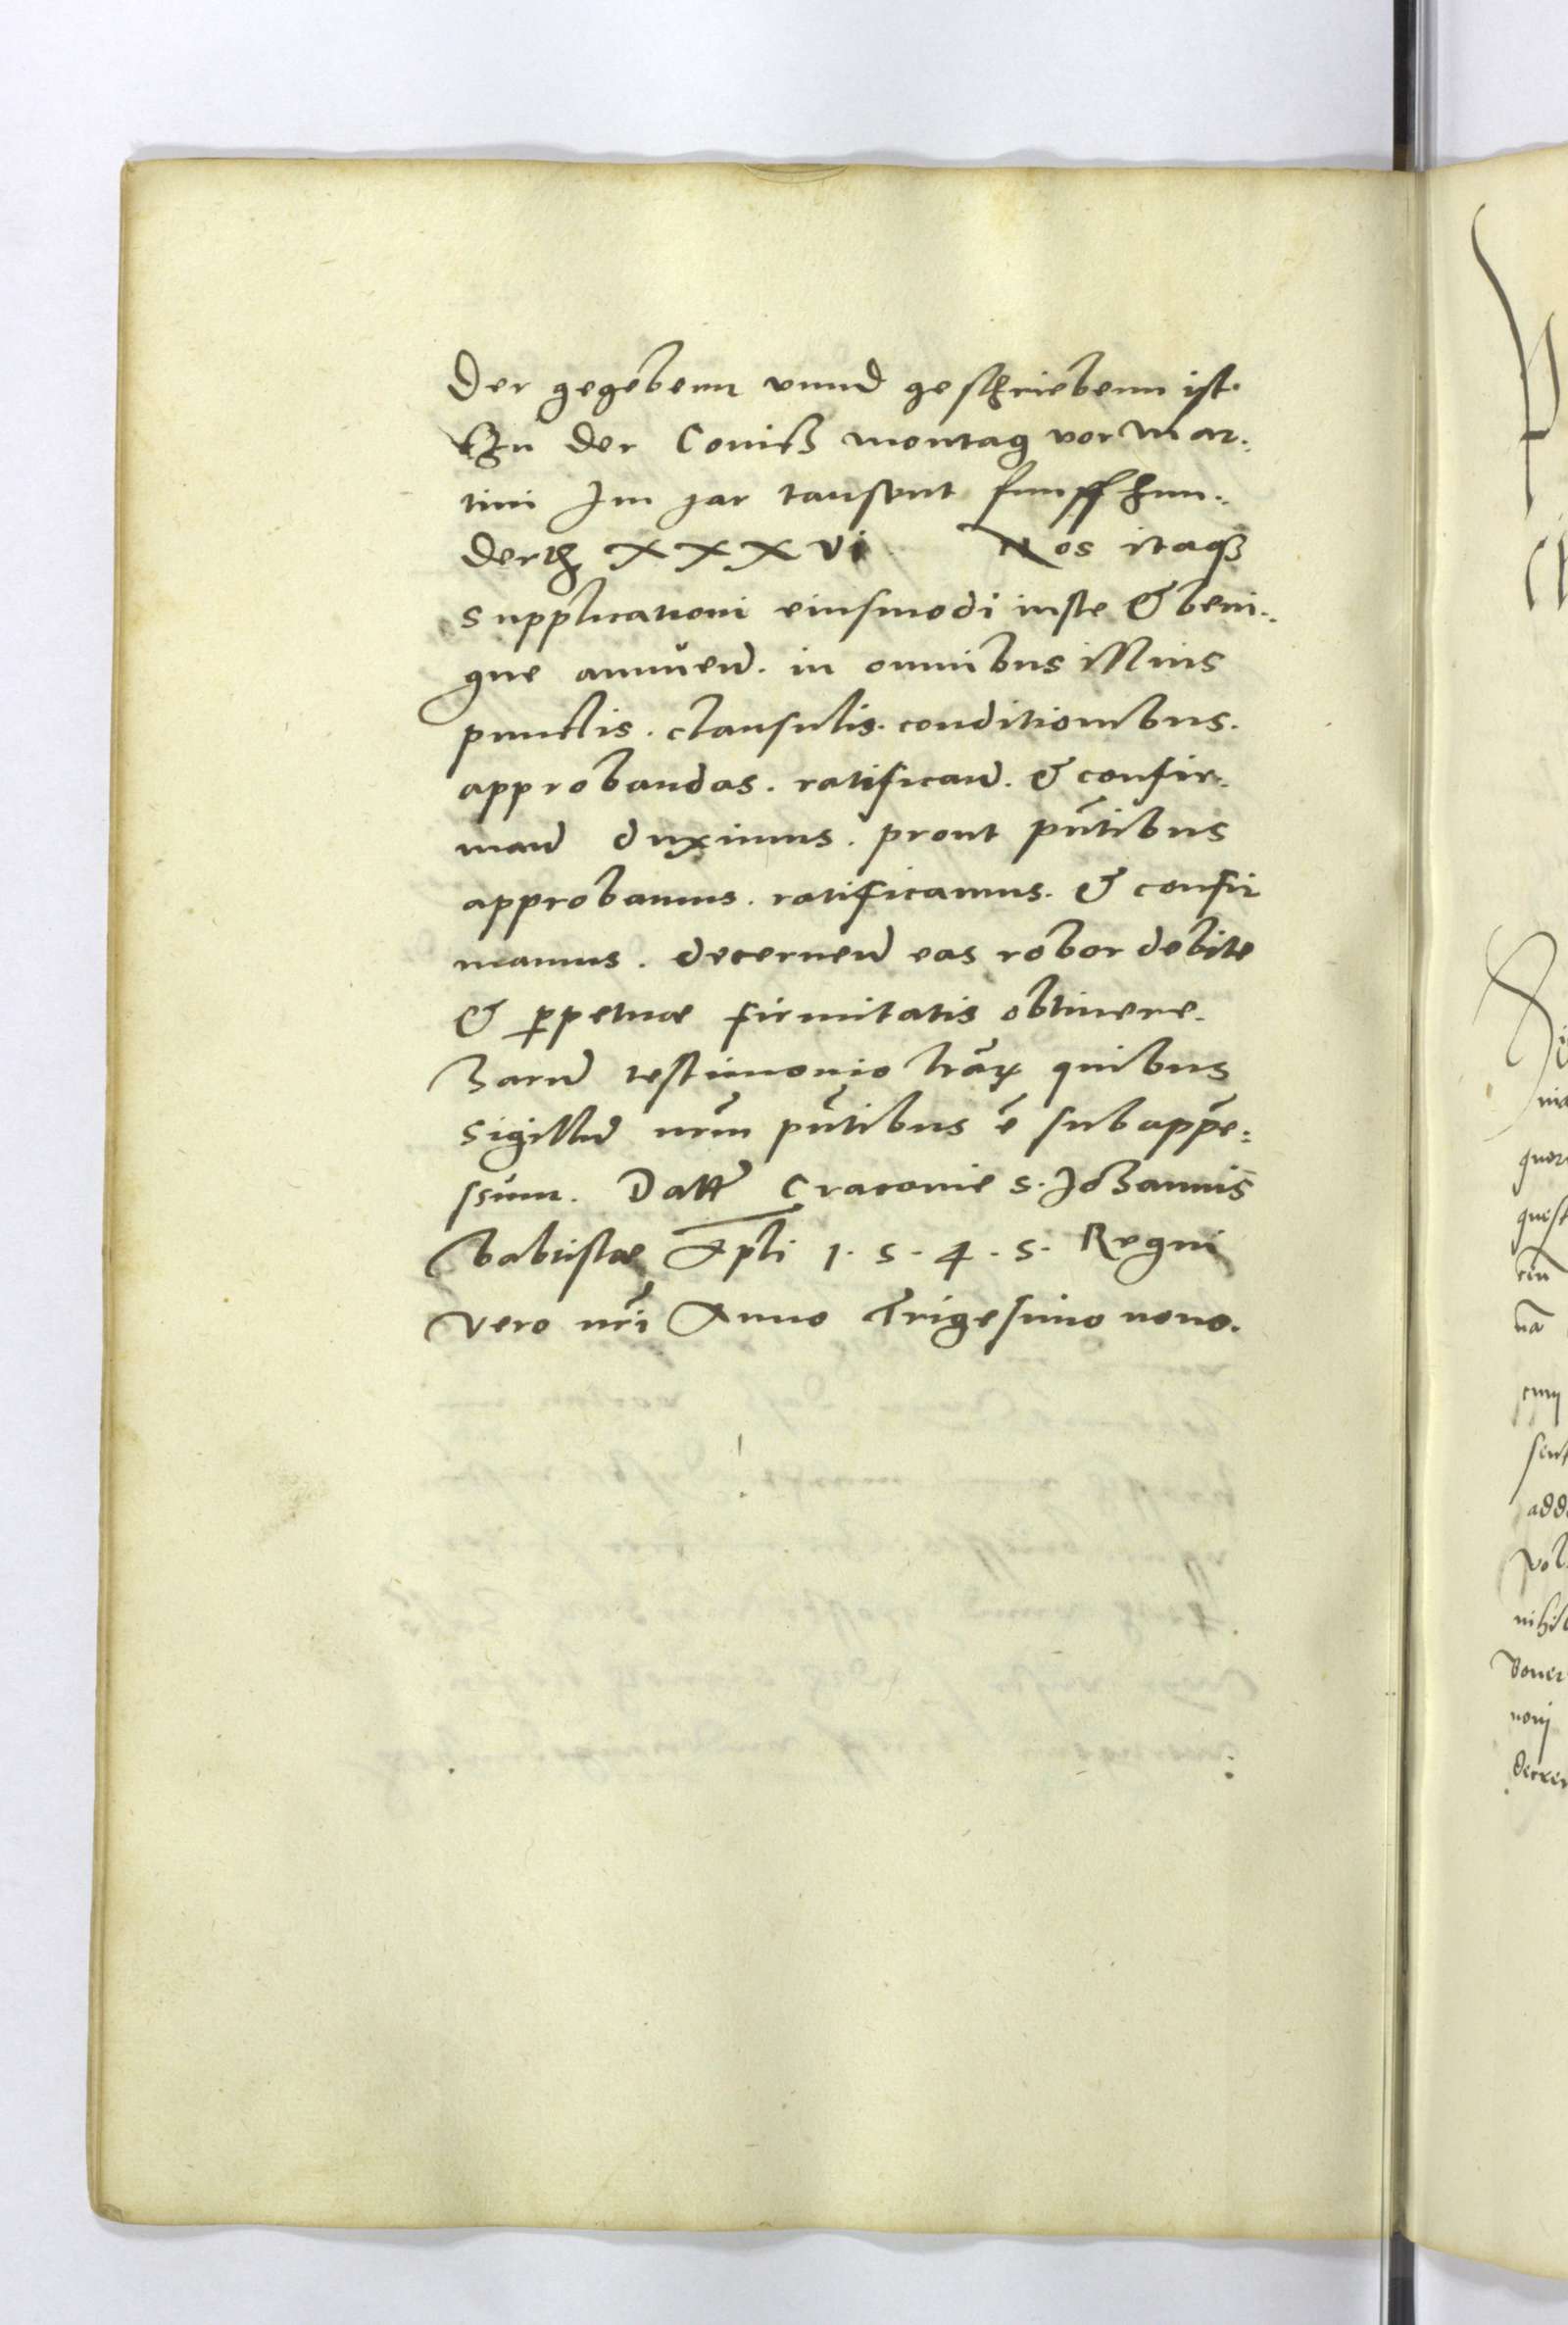 Der gegebenn vnnd geschriebenn ist.
Czu der Conitz montag vor Mar¬
tini Im jar tausent funffhun¬
derth XXXVI Nos itaqꝫ
supplicationi eiusmodi iuste & beni¬
gne annuen̄. in omnibus illius
punctis. clausulis. conditionibus.
approbandas. ratifican̄. & confir¬
man̄ duximus. prout pn̄tibus
approbamus. ratificamus. & confir
mamus. decernen̄ eas robor debite
& ꝑpetuae firmitatis obtinere.
Harū testimonio lrãꝝ quibus
sigillū nr̄m pn̄tibus ē subappē¬
ssum. Datt Cracovie S. Johannis
babtistae Apli 1.5.4.5. Regni
vero nr̄i Anno Trigesimo nono.
quest
nā
sent
adde